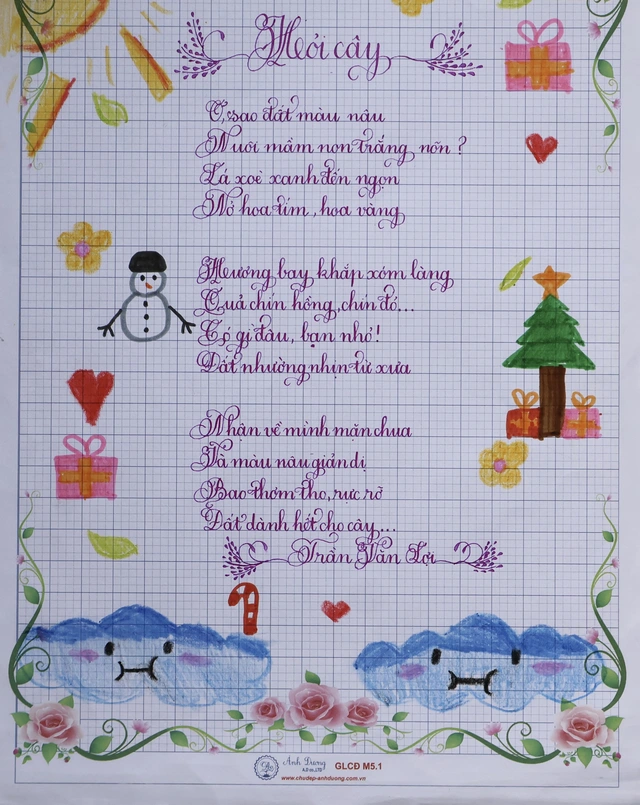 Hỏi cây
Ơ, sao đất màu nâu
Nuôi mầm non trắng nõn ?
Lá xoè xanh đến ngọn
Nở hoa tím, hoa vàng
Hương bay khắp xóm làng
Quả chín hồng, chín đỏ...
Có gì đâu, bạn nhỏ!
Đất nhường nhịn từ xưa
Nhận về mình mặn chua
Và màu nâu giản dị
Bao thơm tho, rực rỡ
Đất dành hết cho cây...
Trần Văn Lợi
Ánh Dương
A.D co.,LTD
GLCĐ M5.1
www.chudep-anhduong.com.vn